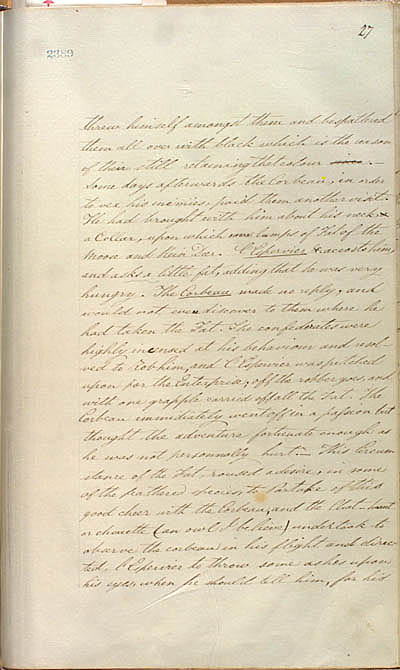 27
2389
threw himself amongst them and bespattered
them all over with black which is the reason
of their still retaining that colour since. —
Some days afterwards the Corbeau, in order
to vex his enemies, paid them another visit.
He had brought with him about his neck
a Collar, upon which were lumps of Fat of the
Moose and Rein Dar. L'Epervier accosts him,
and asks a little fat, adding that he was very
hungry. The Corbeau made no reply, and
would not even discover to them where he
had taken the Fat. The confederates were
highly incensed at his behaviour and resol
ved to rob him, and L'Epervier was pitched
upon for the Enterprise; off the robber goes, and
with one grapple carried off all the Fat. The
Corbeau immediately went off in a passion but
thought the adventure fortunate enough as
he was not personnally hurt — This Circum
stance of the Fat, roused a desire, in some
of the feathered species, to partake of this
good cheer with the Corbeau, and the Chat-huant
or chouette (an owl I believe) undertook to
observe the corbeau in his flight and direc
ted L'Epervier to throw some ashes upon
his eyes, when he should tell him, for his